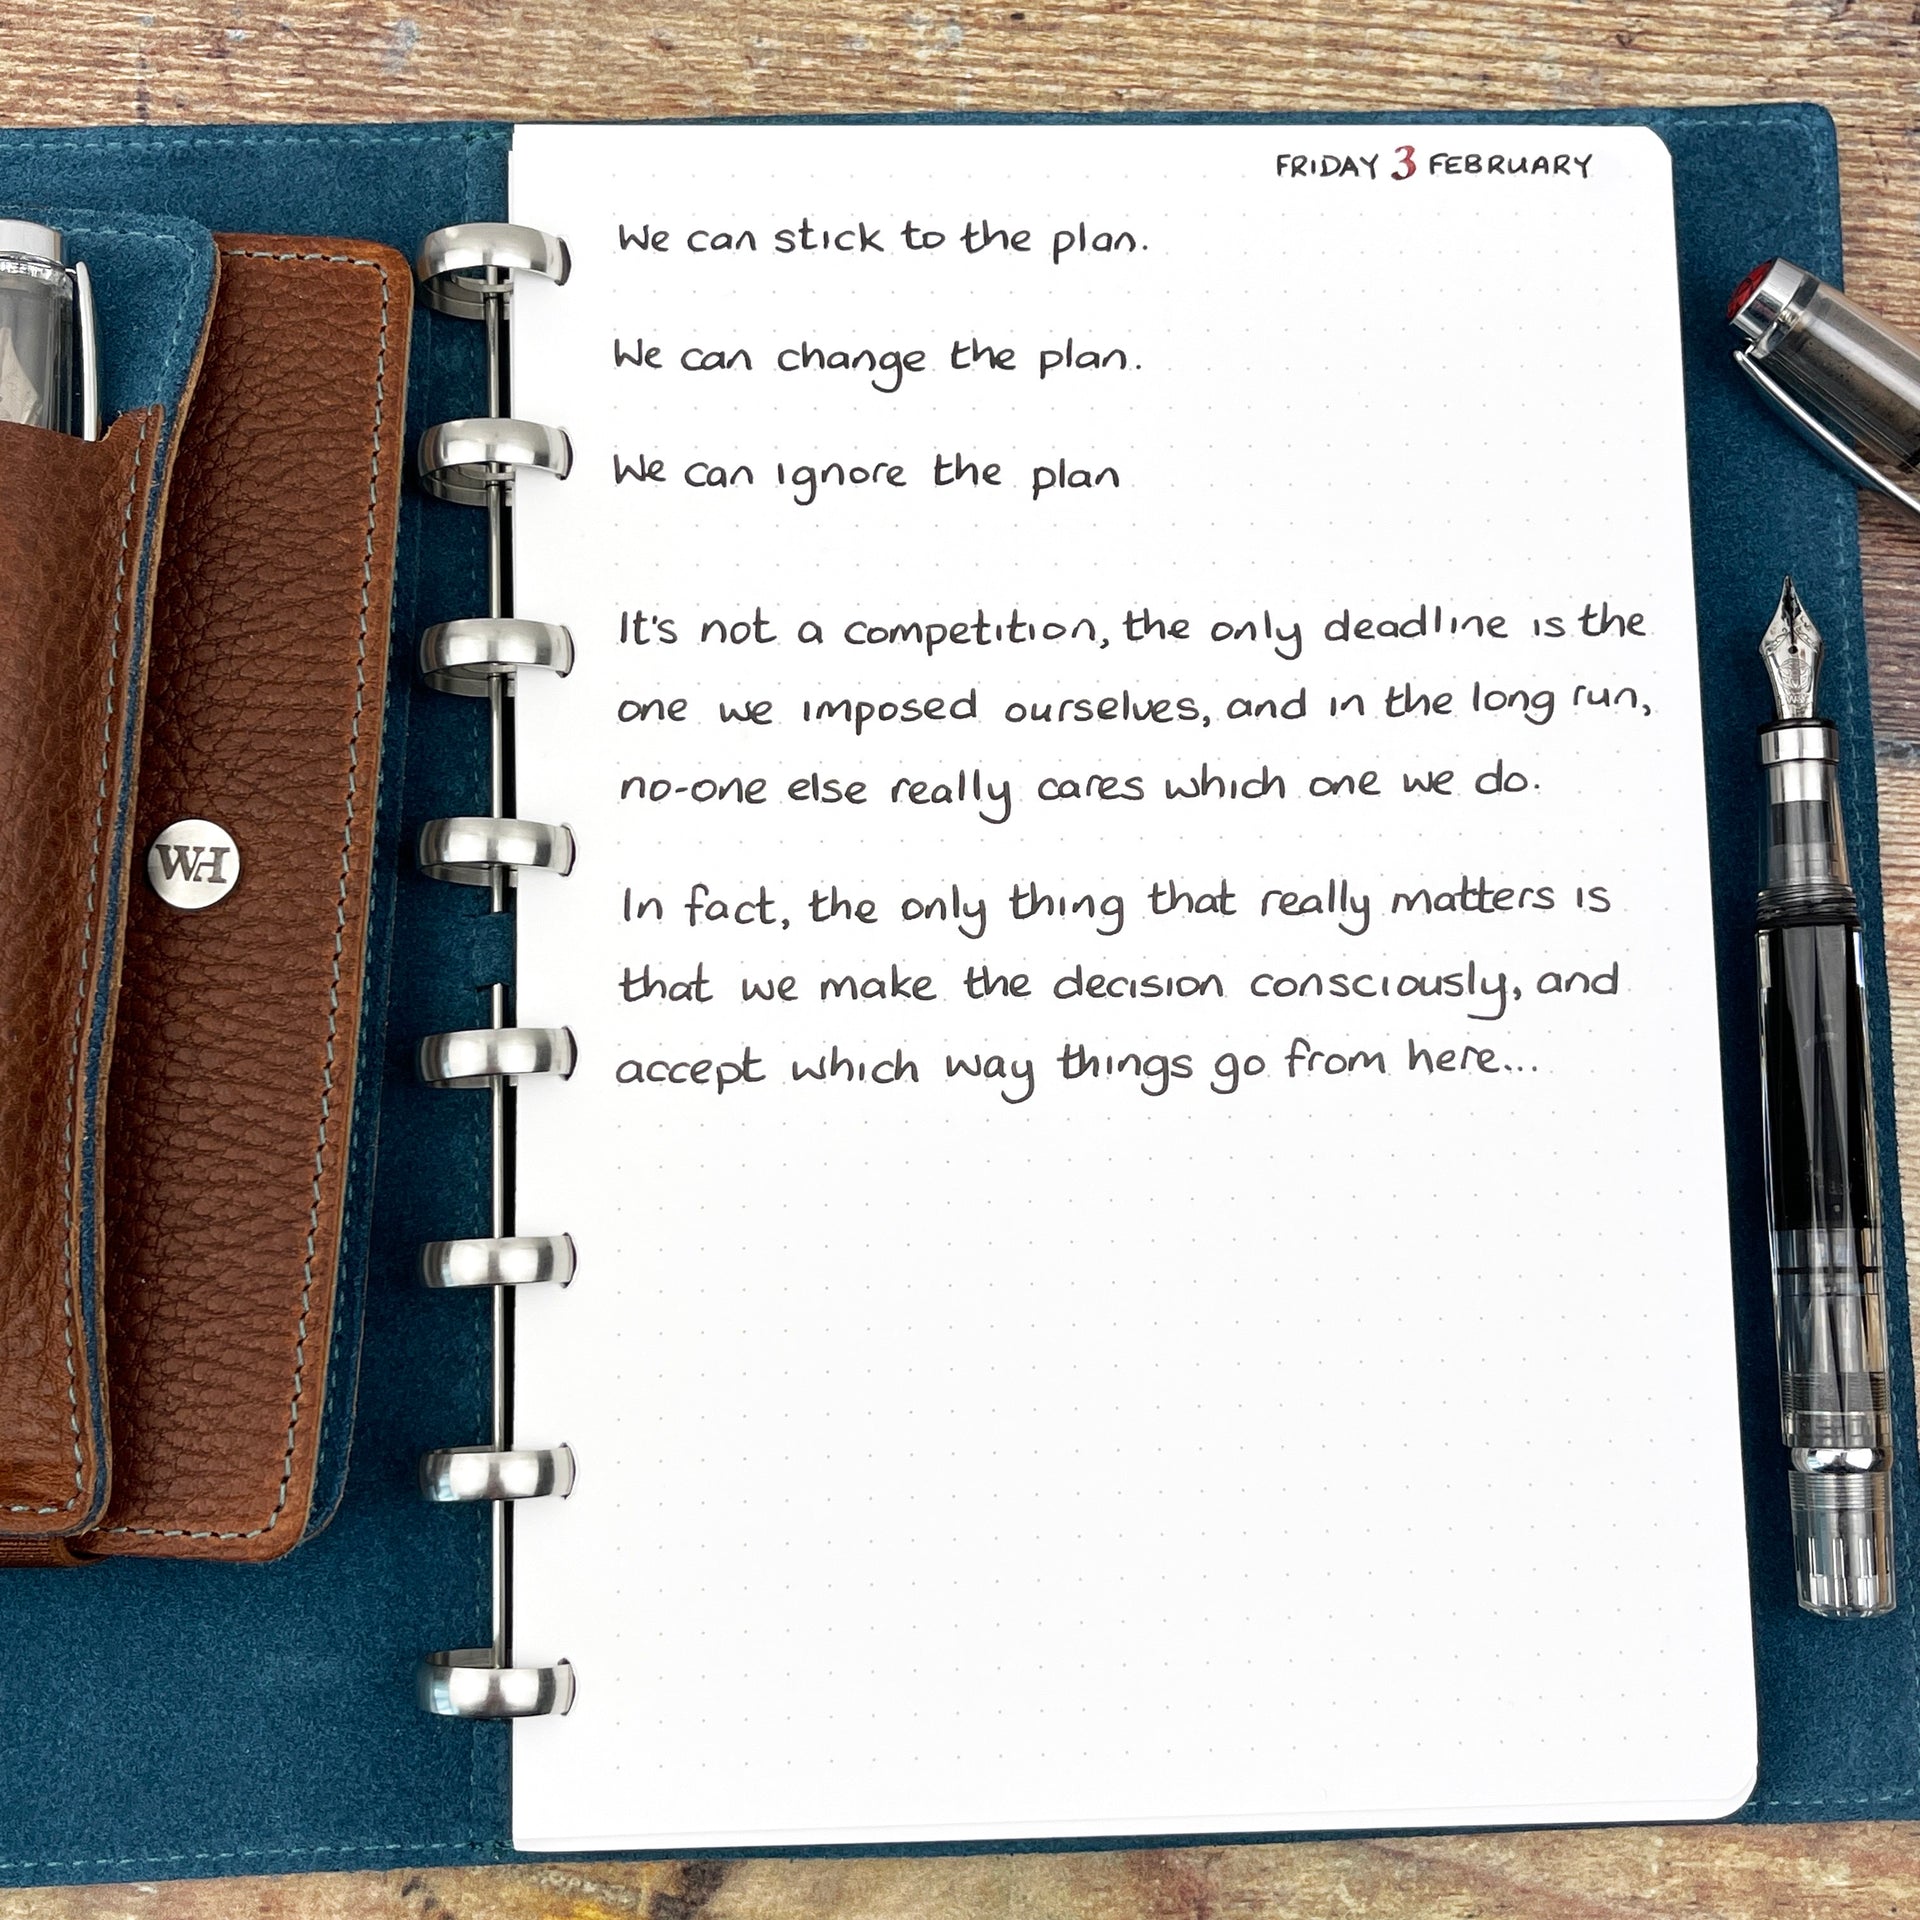 FRIDAY 3 FEBRUARY
We can stick to the plan.
We can change the plan.
We can ignore the plan
It's not a competition, the only deadline is the
one we imposed ourselves, and in the long run,
no-one else really cares which one we do.
In fact, the only thing that really matters is
that we make the decision consciously, and
accept which way things go from here...
WH